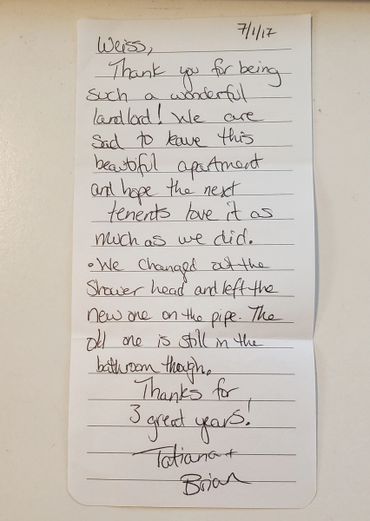 7/1/17
Weiss,
Thank you for being
such a wonderful
landlord! We are
sad to leave this
beautiful apartment
and hope the next
tenents love it as
much as we did.
• We changed out the
shower head and left the
new one on the pipe. The
old one is still in the
bathroom though.
Thanks for
3 great years!
Tatiana +
Brian